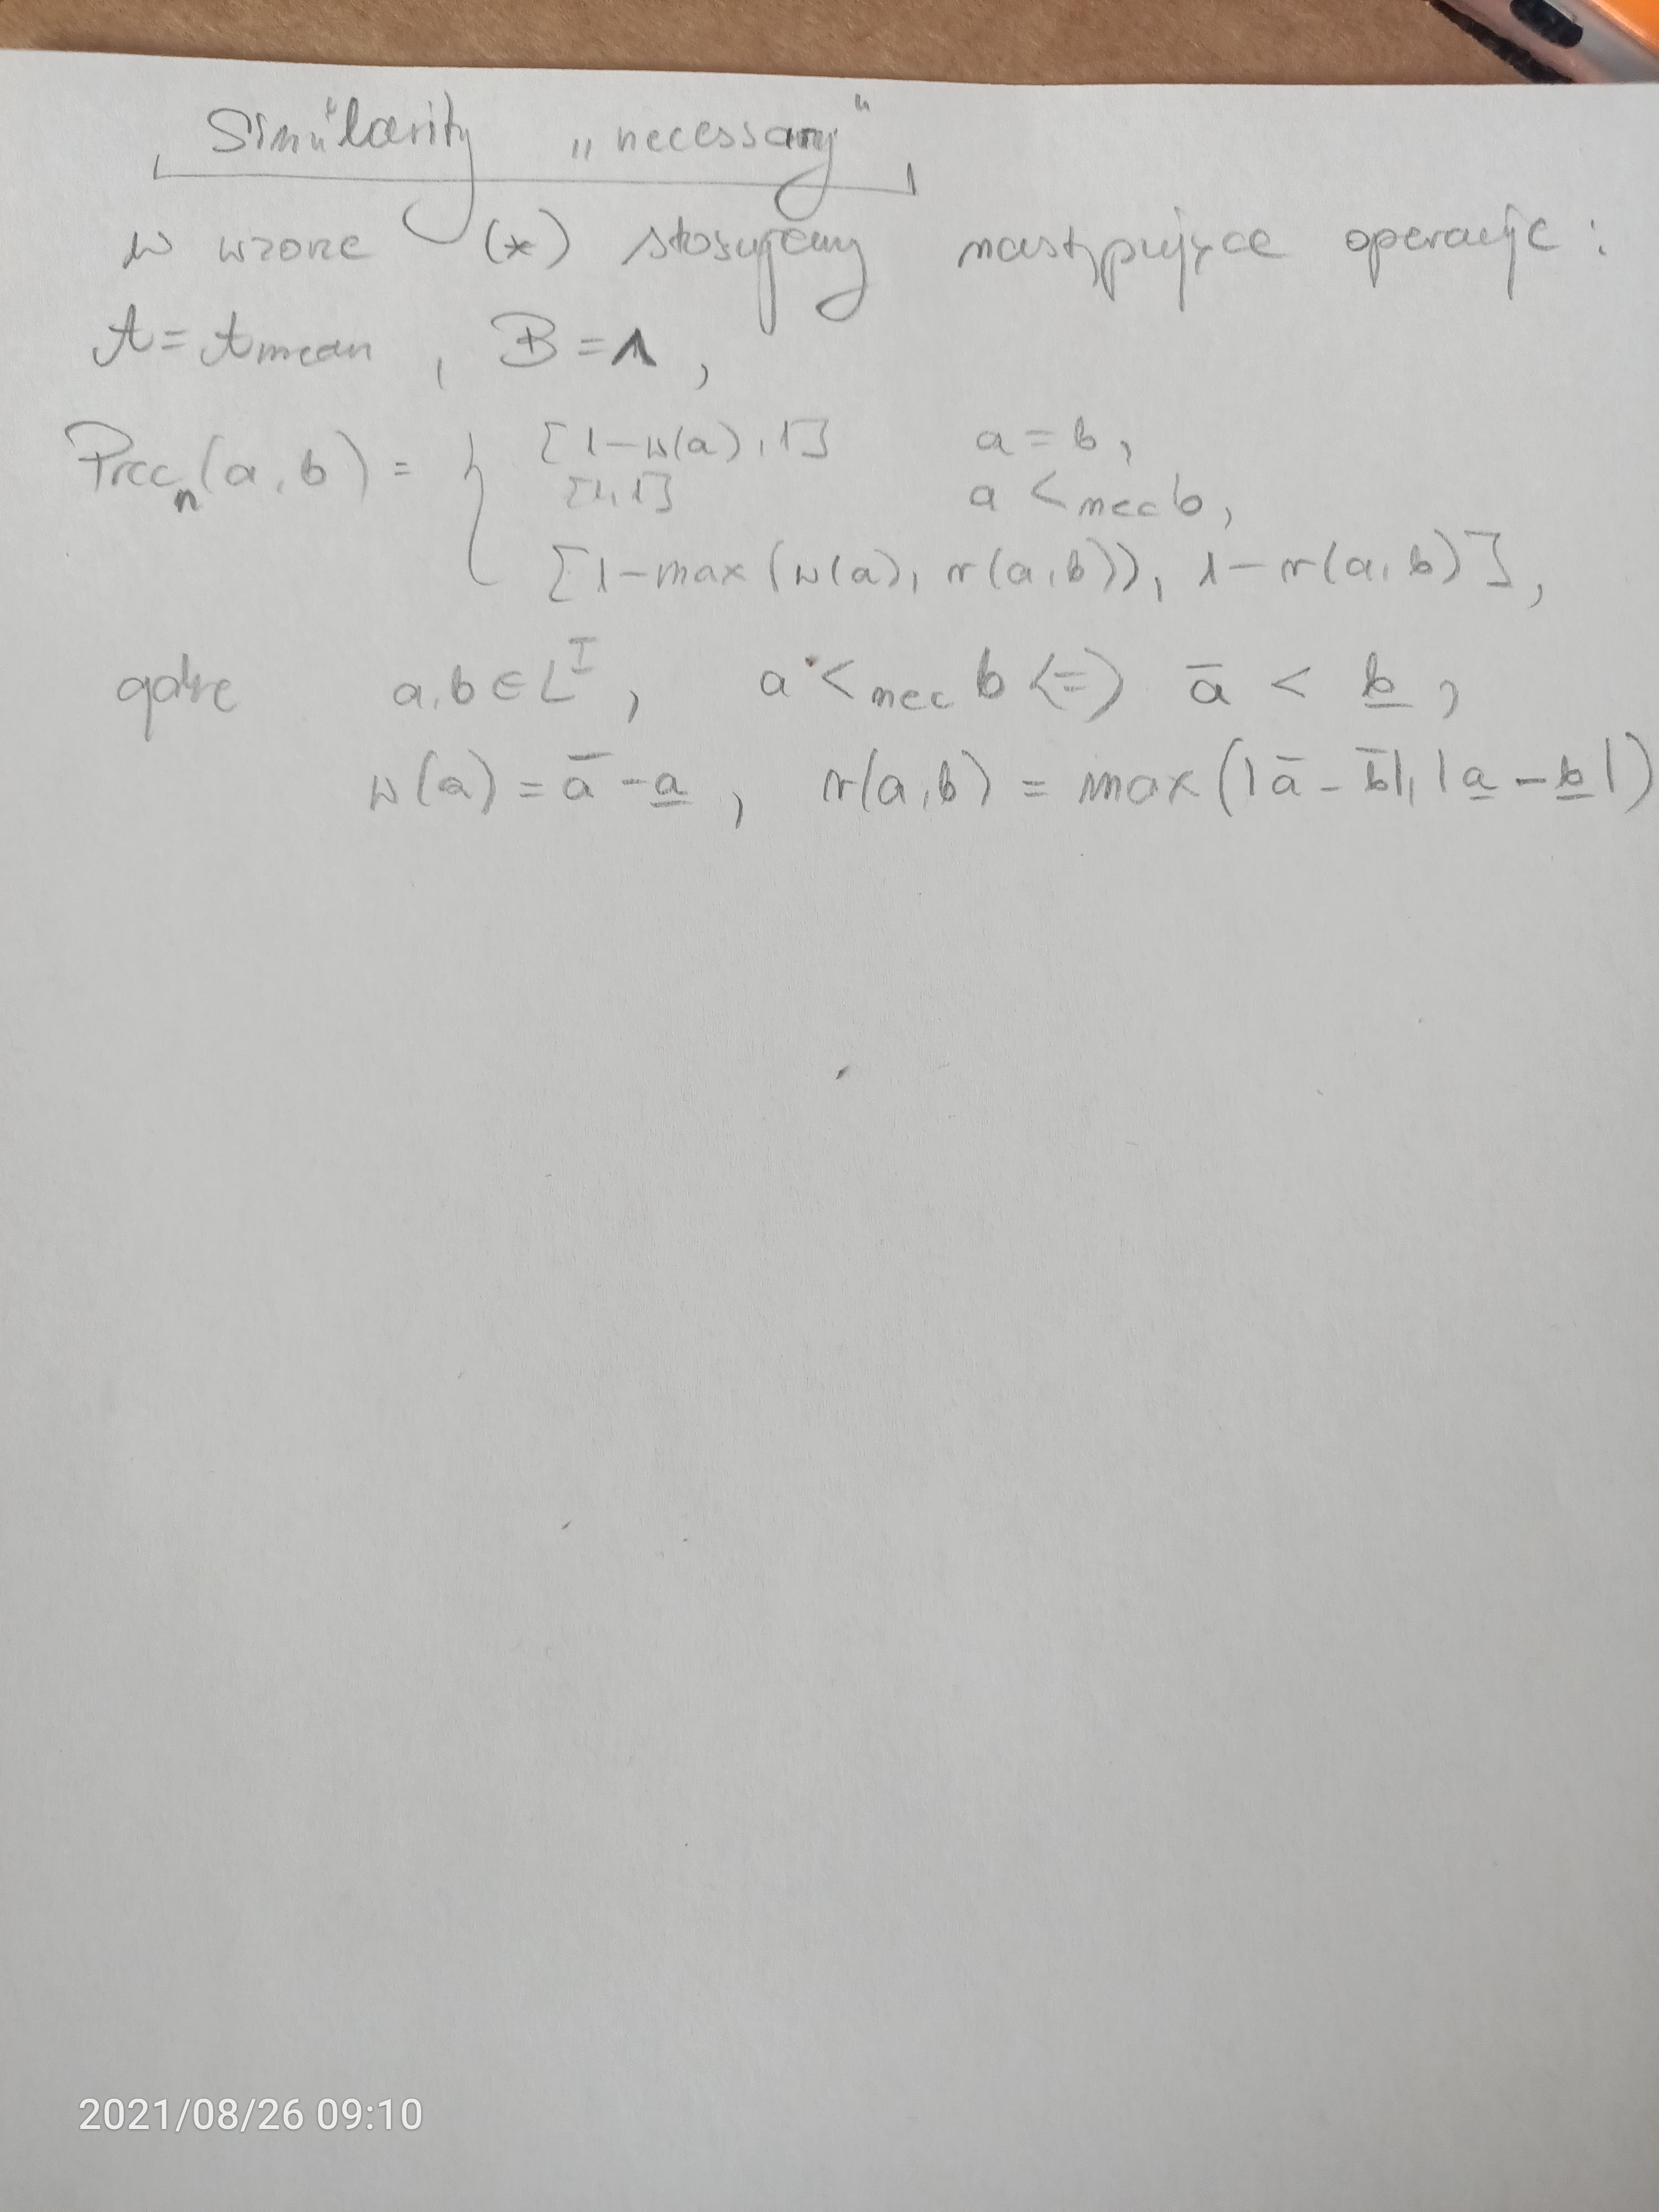 Similarity „necessary"
w wzorze (*) stosujemy następujące operacje :
A = A mean , B = ∧ ,
Prec n (a, b) = { [1 - w(a), 1] a = b ,
[1, 1] a < nec b ,
[1 - max (w(a), r(a, b)), 1 - r(a, b)] ,
gdzie a, b ∈ L^I , a < nec b <=> a̅ < b̲ ,
w(a) = a̅ - a̲ , r(a, b) = max(|a̅ - b̅|, |a̲ - b̲|)
2021/08/26 09:10